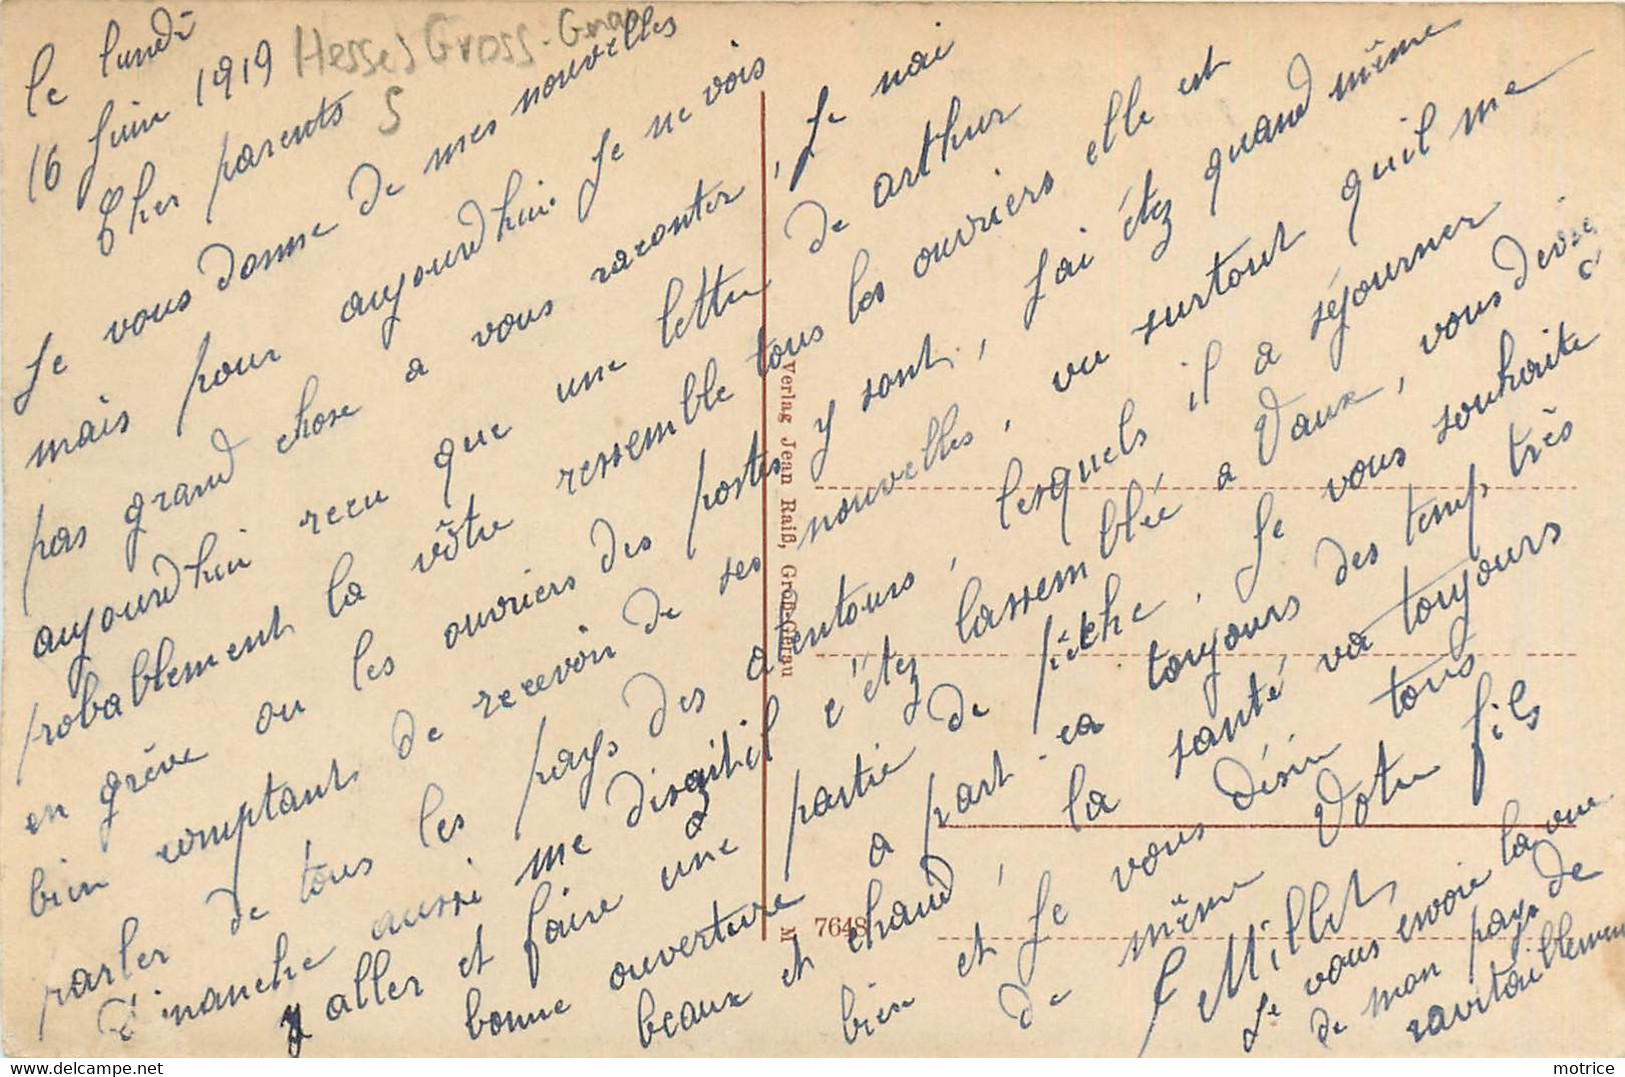 le lundi
16 Juin 1919
Hesse Gross-Gerau
S
Cher parents
Je vous donne de mes nouvelles
mais pour aujourdhui Je ne vois
pas grand chose a vous raconter, Je nai
aujourdhui recu que une lettre de arthur
probablement la vôtre ressemble tous les ouvriers elle est
en grève ou les ouvriers des postes y sont, Jai étez quand même
bien comptant de recevoir de ses nouvelles, vu surtout quil me
parler de tous les pays des alentours, lesquels il a séjourner
Dimanche aussi me disait-il c'étez lassemblée a Vaux, vous devié
y aller et faire une partie de pêche, Je vous souhaite
bonne ouverture a part ca toujours des temps très
beaux et chaud, la santé va toujours
bien et Je vous désire tous
de même Votre fils
Millet
Je vous envoie la vue
de mon pays de
ravitaillement
Verlag Jean Raiß, Groß-Gerau
M 7648
motrice